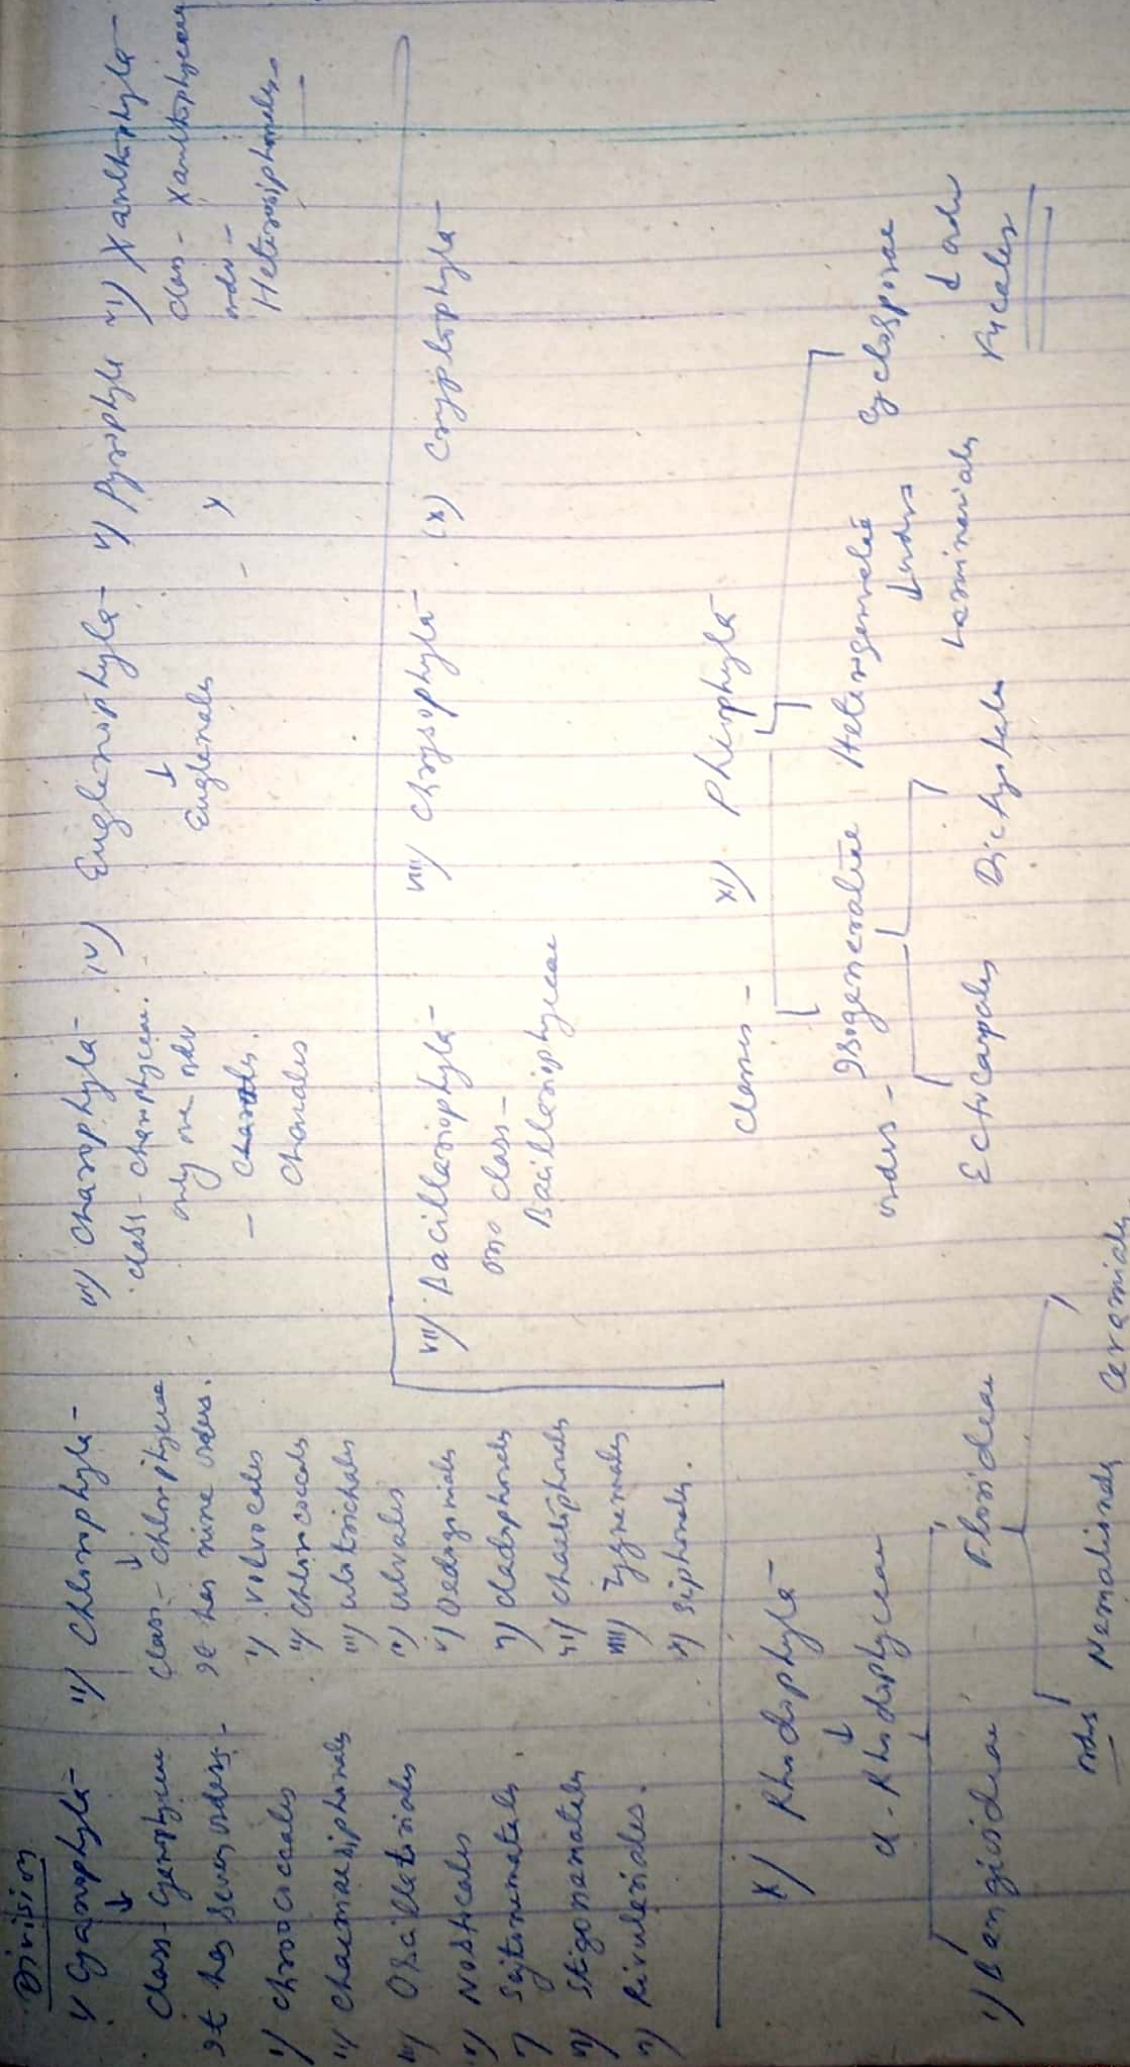 Division
i) Cyanophyta-
↓
Class- Cyanophyceae
It has seven orders-
i) Chroococcales
ii) Chaemaesiphonales
iii) Oscillatoriales
iv) Nostocales
v) Sytonematales
vi) Stigonematales
vii) Rivulariales.
ii) Chlorophyta-
↓
Class- Chlorophyceae
It has nine orders.
i) Volvocales
ii) Chlorococcales
iii) Ulotrichales
iv) Ulvales
v) Oedogoniales
vi) Cladophorales
vii) Chaetophorales
viii) Zygnemales
ix) Siphonales.
iii) Charophyta-
class- Charophyceae.
only one order
- Charales
iv) Euglenophyta-
↓
Euglenales
v) Pyrrophyta
x
vi) Xanthophyta-
Class- Xanthophyceae
order-
Heterosiphonales.
vii) Bacillariophyta-
class-
Bacillariophyceae
viii) Chrysophyta-
(x) Cryptophyta-
x) Rhodophyta-
↓
cl- Rhodophyceae
i) Bangioideae Florideae
orders Nemalionales Ceramiales
xi) Pheophyta-
classes- Isogeneratae Heterogeneratae Cyclosporae
orders- ↓ orders ↓ order
Ectocarpales Dictyotales Laminariales Fucales